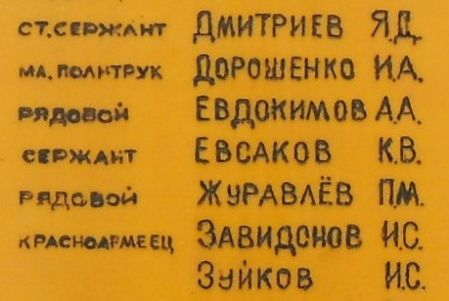 СТ. СЕРЖАНТ ДМИТРИЕВ Я.Д.
МЛ. ПОЛИТРУК ДОРОШЕНКО И.А.
РЯДОВОЙ ЕВДОКИМОВ А.А.
СЕРЖАНТ ЕВСАКОВ К.В.
РЯДОВОЙ ЖУРАВЛЁВ П.М.
КРАСНОАРМЕЕЦ ЗАВИДОНОВ И.С.
ЗУЙКОВ И.С.